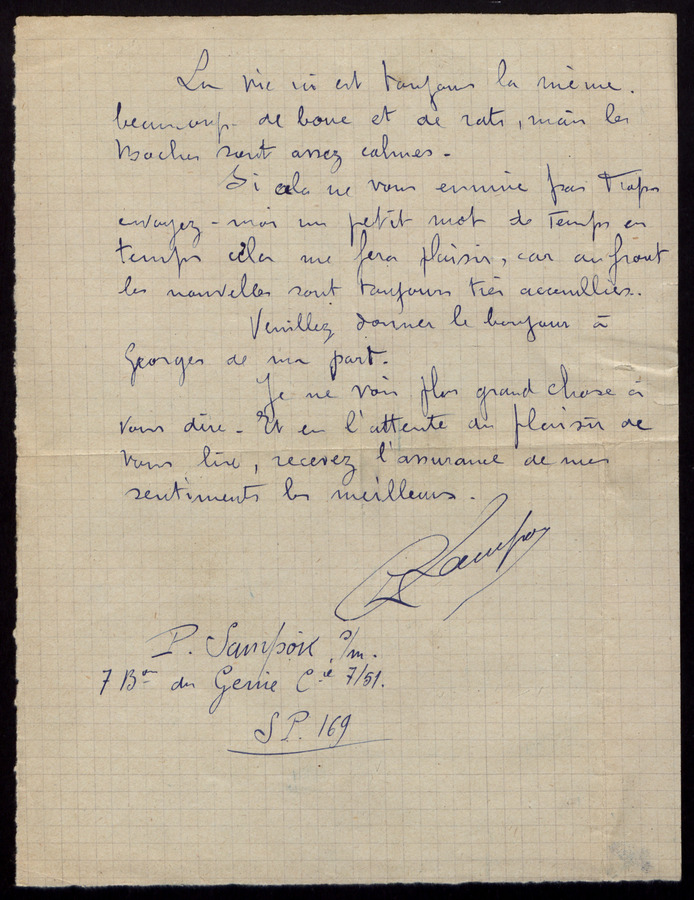 La vie ici est toujours la même.
beaucoup de boue et de rats, mais les
Boches sont assez calmes.
Si cela ne vous ennuie pas trop
envoyez-moi un petit mot de temps en
temps cela me fera plaisir, car au front
les nouvelles sont toujours très accueillies.
Veuillez donner le bonjour à
Georges de ma part.
Je ne vois plus grand chose à
vous dire. Et en l'attente du plaisir de
vous lire, recevez l'assurance de mes
sentiments les meilleurs.
P. /m.
7 Bon du Genie Cie 7/51.
S P. 169